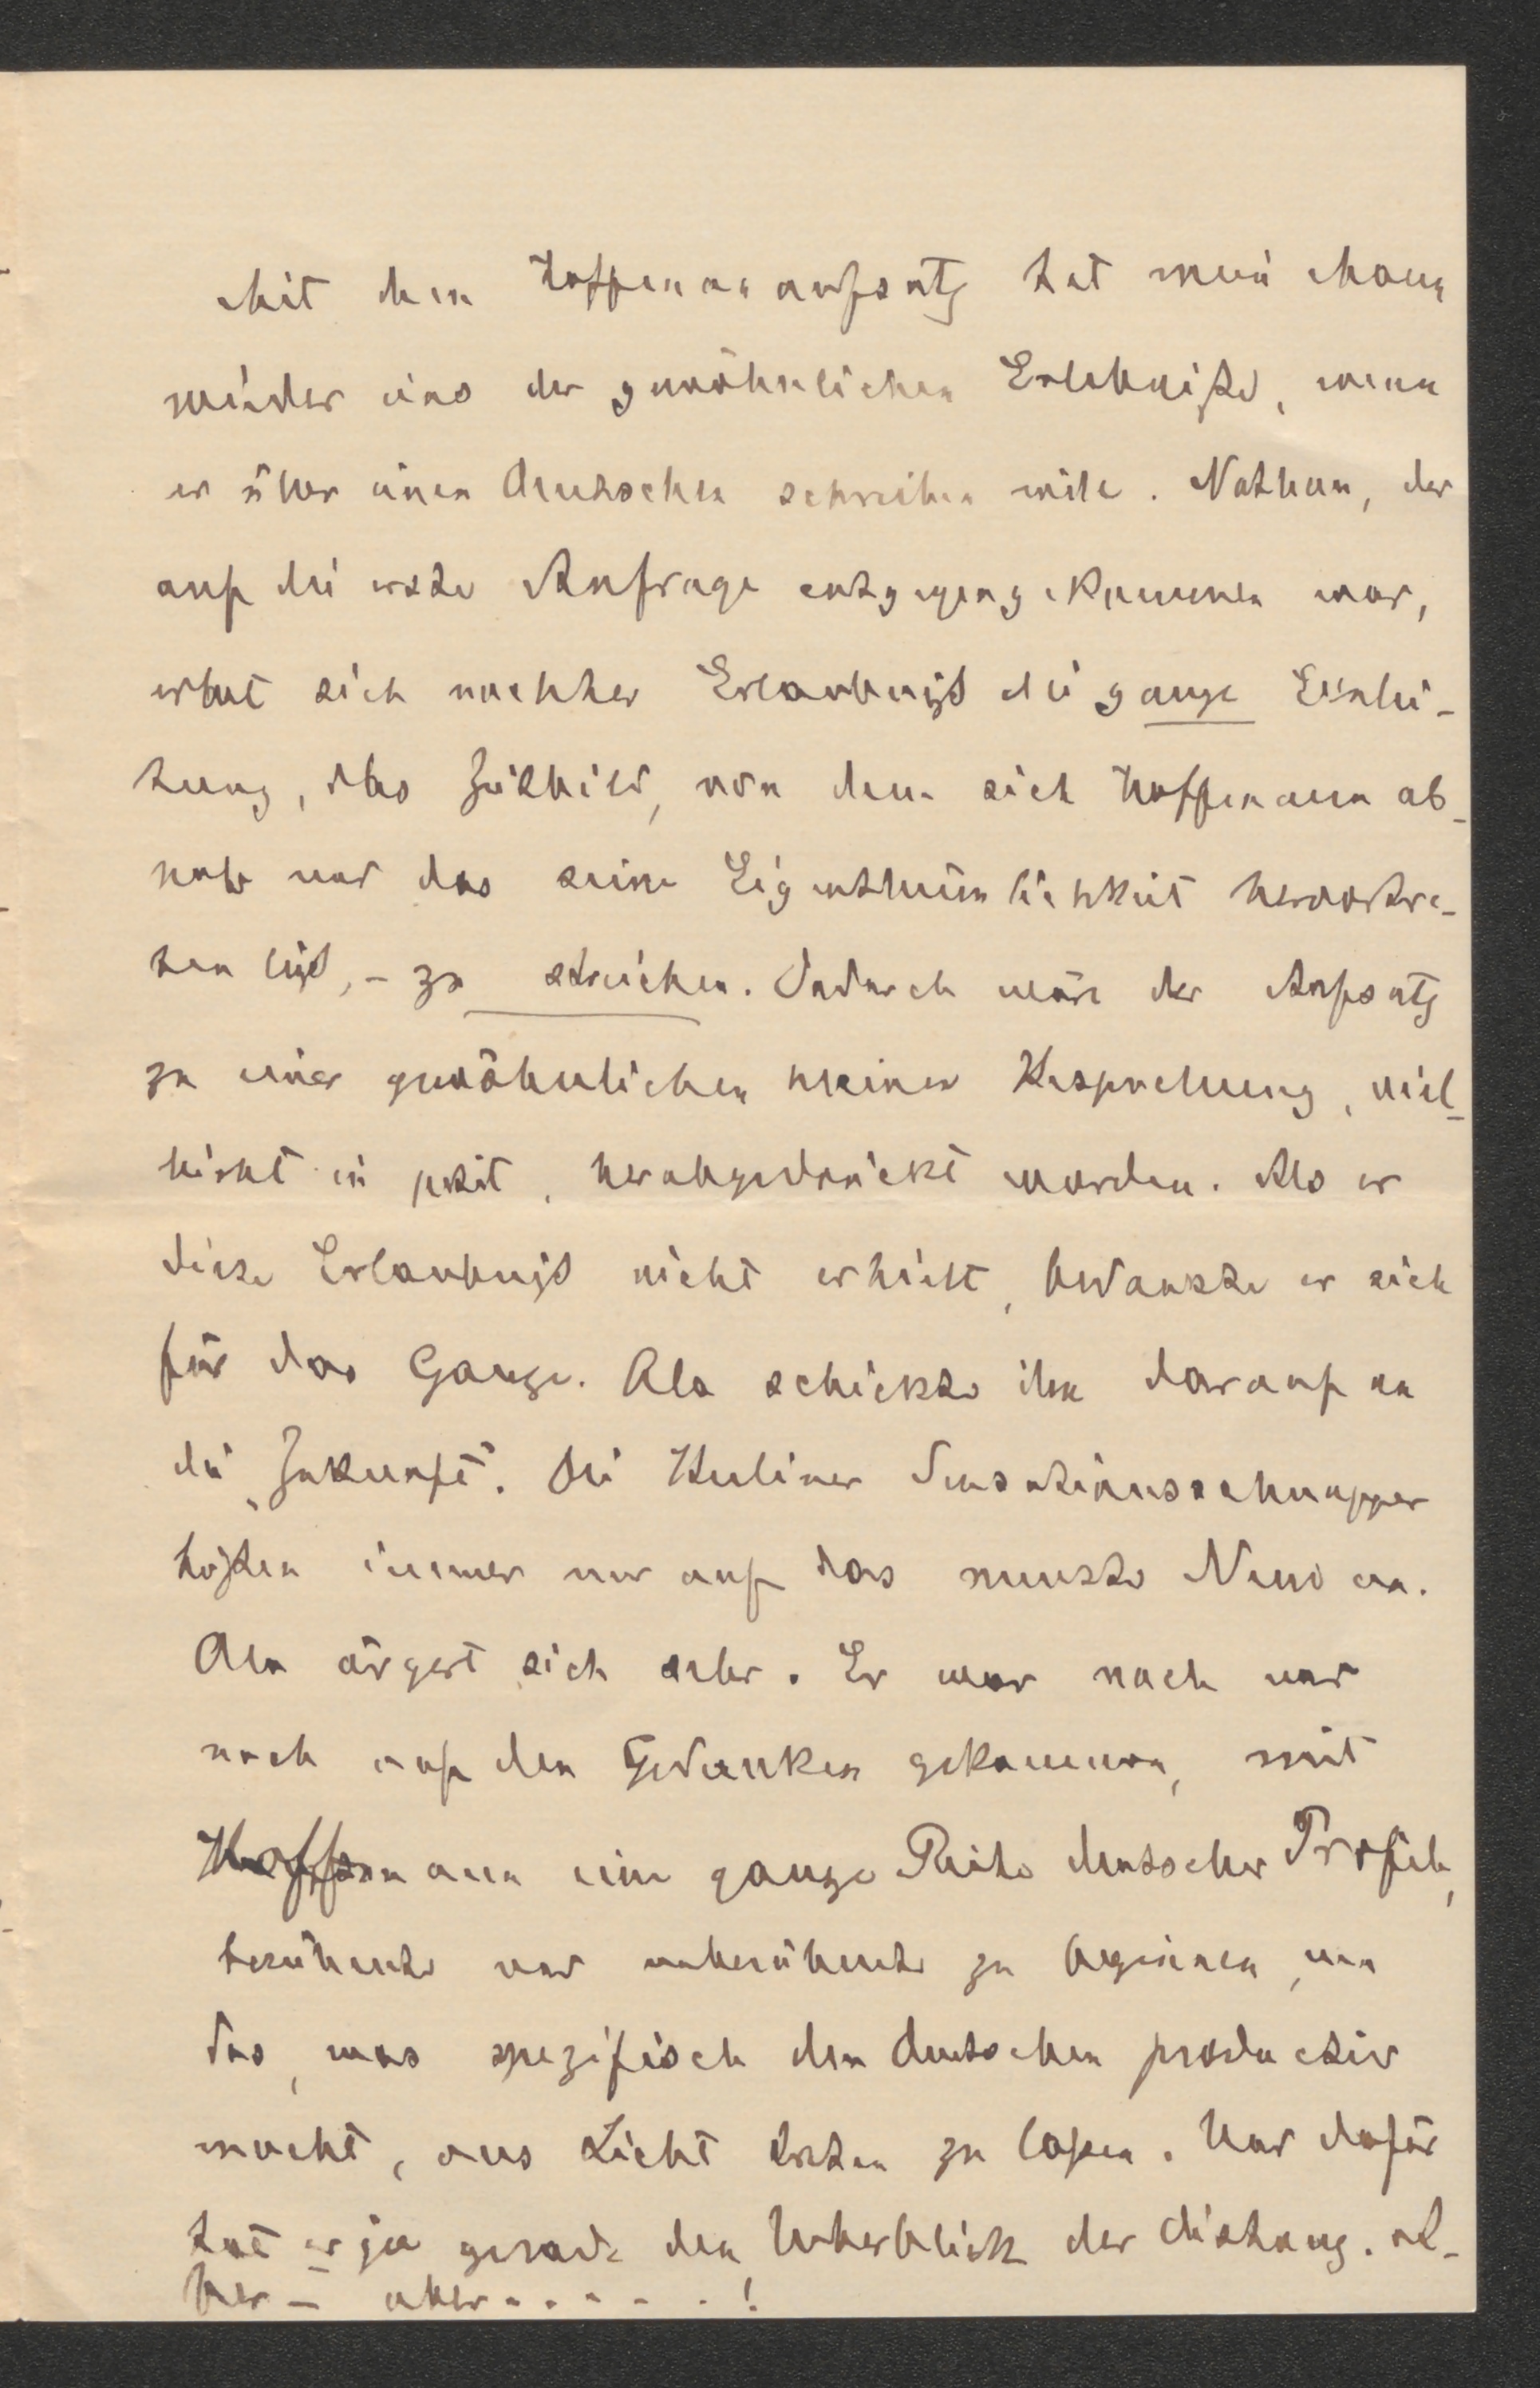 Mit dem Hoffmannaufsatz hat mein Mann
wieder eins der gewöhnlichen Erlebniße, wenn
er über einen Deutschen schreiben will. Nathan, der
auf die erste Anfrage entgegengekommen war,
erbat sich nachher Erlaubniß die ganze Einlei-
tung, das Zeitbild, von dem sich Hoffmann ab-
hob und das seine Eigenthümlichkeit hervortre-
ten ließ, - zu streichen. Dadurch wäre der Aufsatz
zu einer gewöhnlichen kleinen Besprechung, viel-
leicht in petit, herabgedrückt worden. Als er
diese Erlaubniß nicht erhielt, bedankte er sich
für das Ganze. Ola schickte ihn darauf an
die „Zukunft". Die Berliner Sensationsschnapper
beißen immer nur auf das neuste Neue an.
Ola ärgert sich sehr. Er war nach und
nach auf den Gedanken gekommen, mit
Hoffmann eine ganze Reihe deutscher Profile,
berühmte und unberühmte zu beginnen, um
das, was spezifisch den Deutschen productiv
macht, ans Licht treten zu laßen. Und dafür
hat er ja gerade den Ueberblick der Distanz. A-
ber – aber . . . . . . !